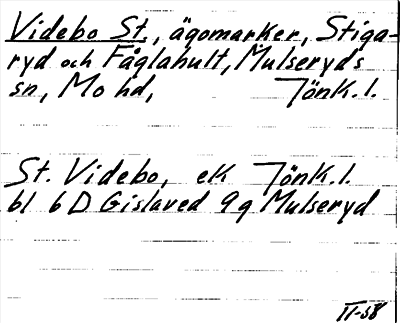 Videbo St., ägomarker, Stiga-
ryd och Fåglahult, Mulseryds
sn, Mo hd, Jönk. l.
St. Videbo, ek Jönk. l.
bl 6 D Gislaved 9 g Mulseryd
II-58